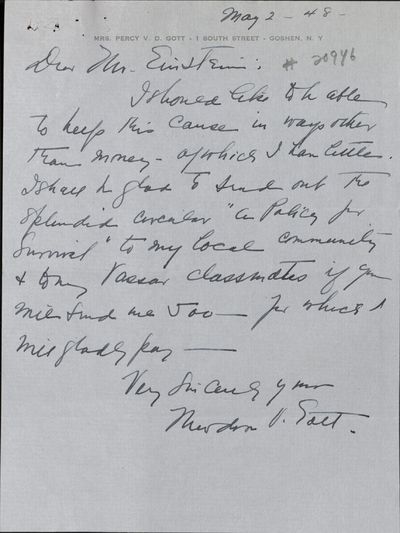 May 2 - 48 -
MRS. PERCY V. D. GOTT - 1 SOUTH STREET - GOSHEN, N. Y
# 20946
Dear Mr. Einstein:
I should like to be able
to help this cause in ways other
than money - of which I have little.
I shall be glad to send out the
splendid circular "A Policy for
Survival" to my local community
& to my Vassar classmates if you
will send me 500 — for which I
will gladly pay —
Very Sincerely yours
Theodora V. Gott.